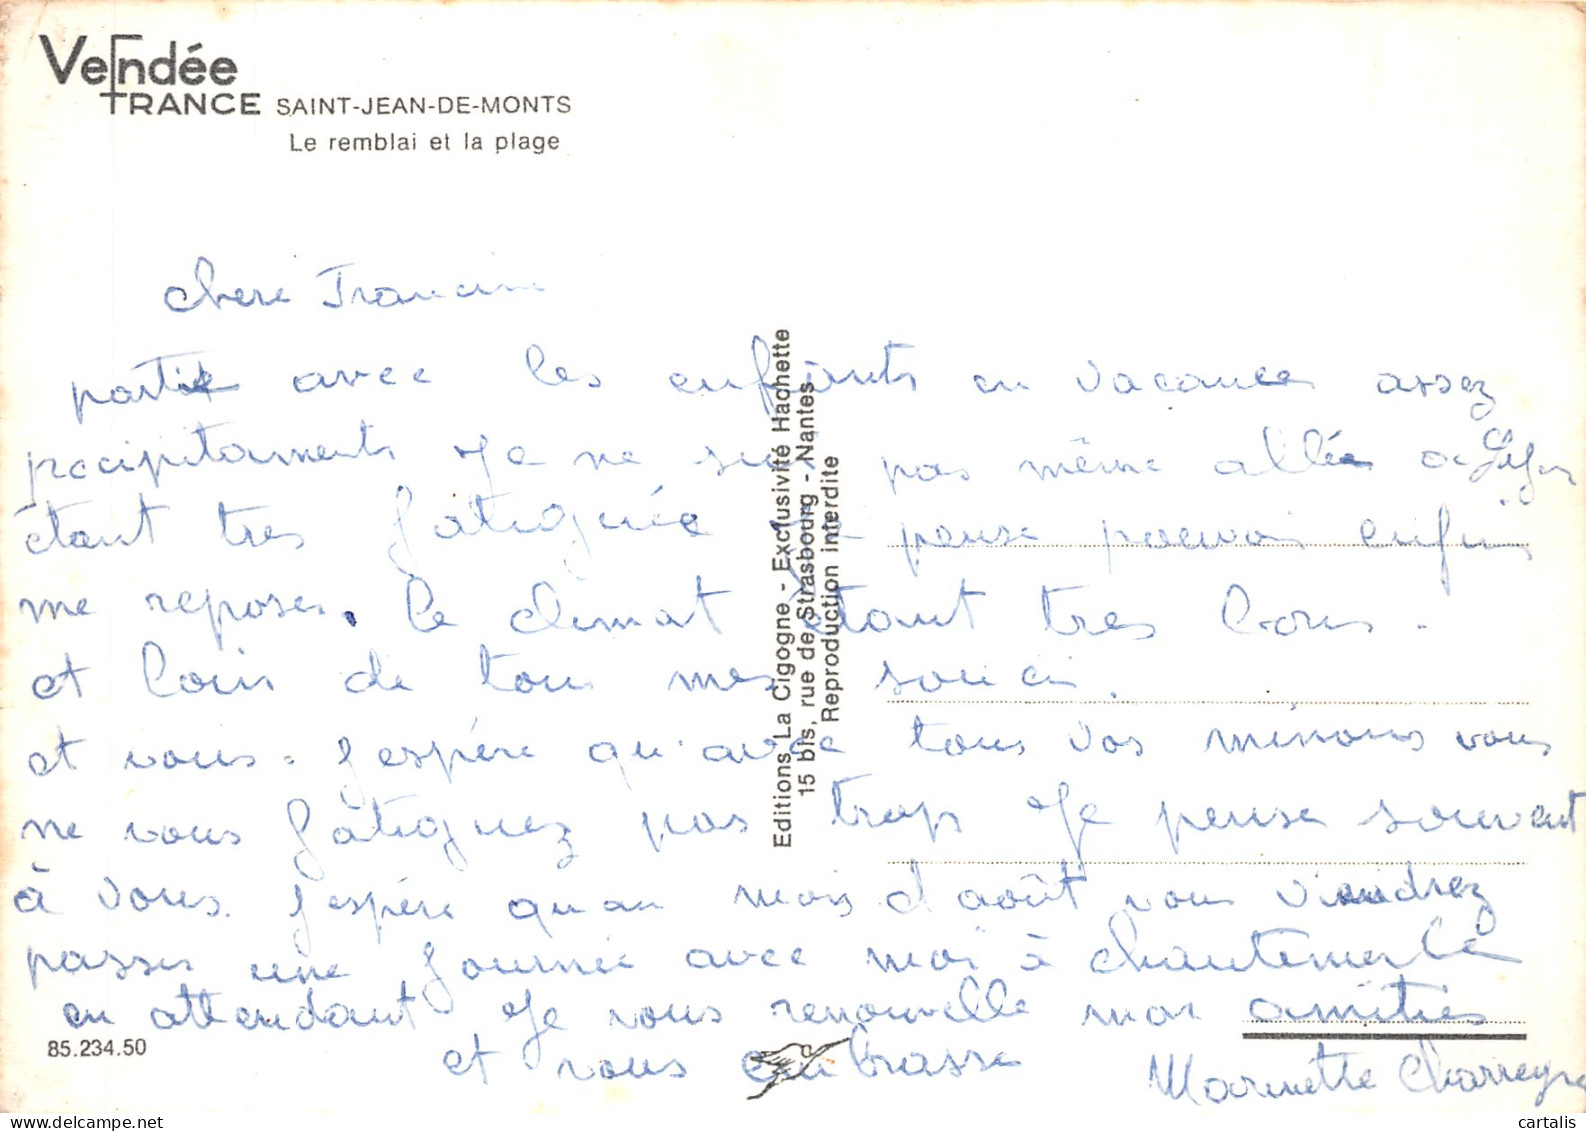 Vendée
FRANCE SAINT-JEAN-DE-MONTS
Le remblai et la plage
chere Francine
partie avec les enfants en vacances assez
precipitaments Je ne suis pas même allée
étant tres fatiguée Je pense pouvoir enfin
me reposer. le climat étant tres bon.
et loin de tous mes soucis.
et vous. j'espère qu'avec tous vos minous vous
ne vous fatiguez pas trop Je pense souvent
à vous. J'espère qu'au mois d'août vous viendrez
passer une journée avec moi à chantemerle
en attendant Je vous renouvelle mes amitiés
et vous embrasse
Marinette Charreyre
85.234.50
Editions La Cigogne - Exclusivité Hachette
15 bis, rue de Strasbourg - Nantes
Reproduction interdite
cartalis